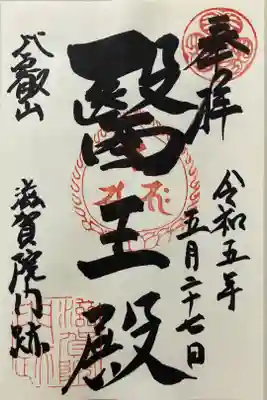 奉拝
令和五年
五月二十七日
醫王殿
比叡山
滋賀院門跡